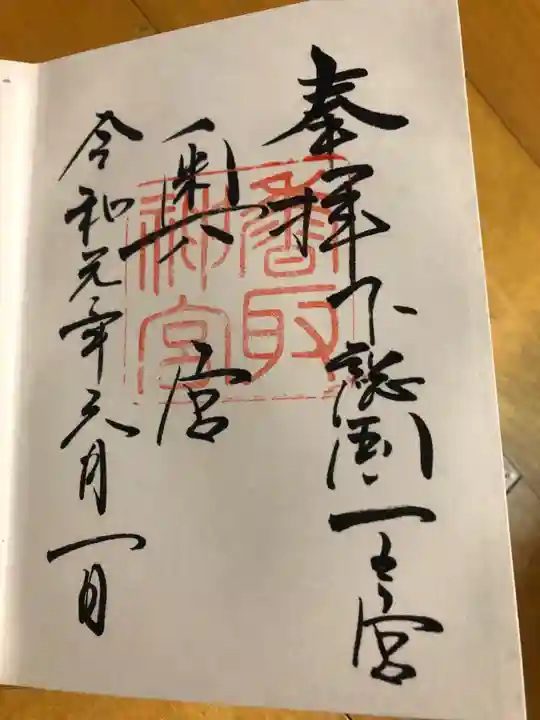 奉拝 下総國一之宮
奥宮
令和元年五月一日
香取
神宮